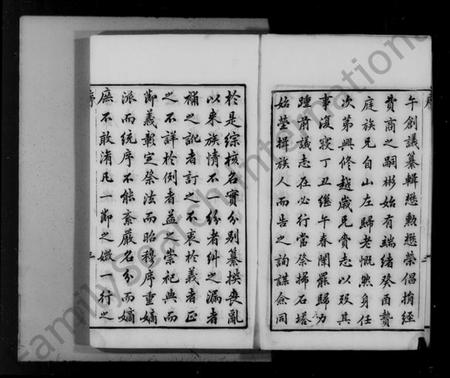 序
午創議纂輯懋懃榮倡捐經
費商之嗣彬始有端緒癸酉贅
庭族兄自山左歸老慨然身任
次第興修越歲兄賫志以歿其
事復寢丁丑繼午春闈罷歸力
踵前議志在必行當祭掃石塔
始塋輯族人而告之詢謀僉同
於是綜核名實分別纂撰喪亂
以來族情不一紛者糾之漏者
補之訛者訂之不衷於義者正
之不詳於例者益之崇祀典而
鄭義報定祭法而昭穆序重嫡
派而統序不能紊嚴名分而嫡
庶不敢淆凡一節之媺一行之
序
FamilySearch International